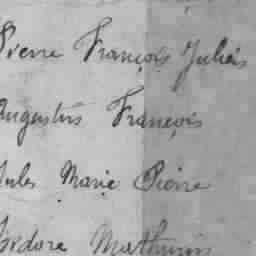 Pierre François Julien
Augustin François
Jules Marie Pierre
Isidore Mathurin